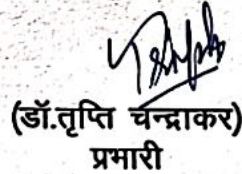 (डॉ.तृप्ति चन्द्राकर)
प्रभारी